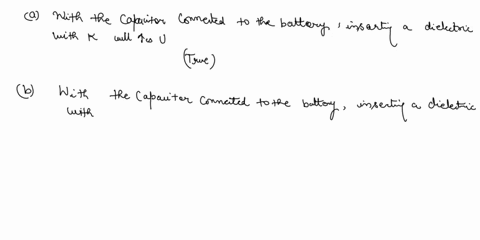 (a) With the Capacitor Connected to the battery, inserting a dielectric
with K will ↑es U
(True)
(b) With the Capacitor Connected to the battery, inserting a dielectric
with